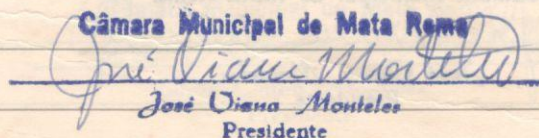 Câmara Municipal de Mata Roma
José Viana Monteles
José Viana Monteles
Presidente